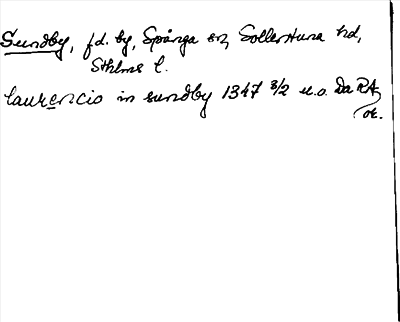 Sundby, fd. by, Spånga sn, Sollentuna hd,
Sthlms l.
laurencio in sundby 1347 3/2 u.o. Da RA
or.